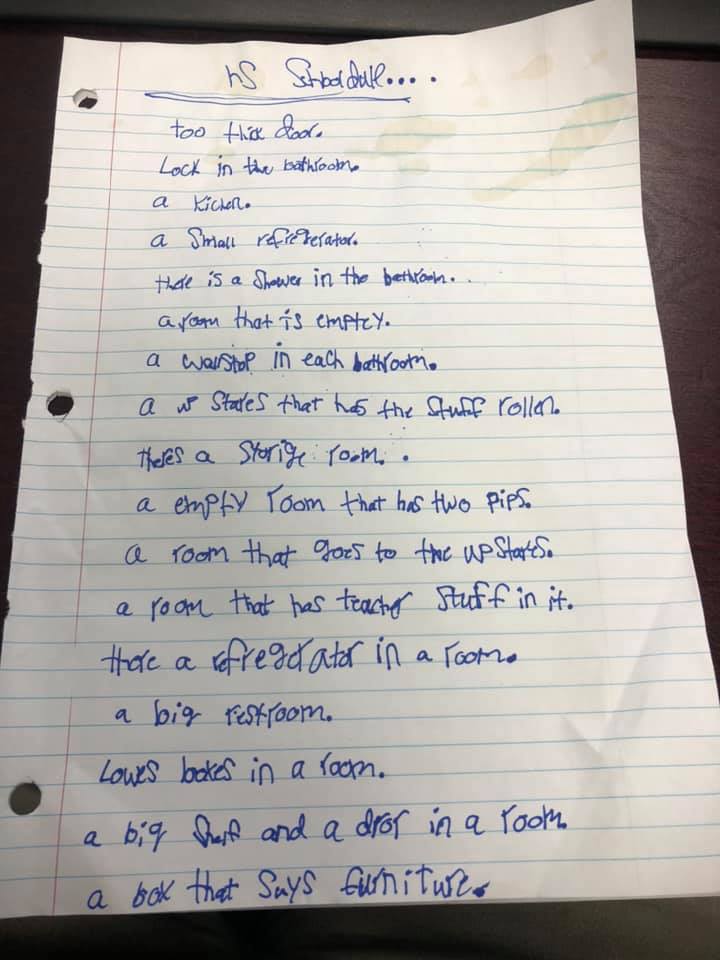 hS Schooldule....
too thick door.
Lock in the bathroom.
a kichen.
a Small refregerator.
there is a Shower in the bethroom.
a room that is emptey.
a in each bathroom.
a up Stares that has the Stuff roller.
theres a Storige room.
a empty room that has two pips.
a room that goes to the upStares.
a room that has teacher Stuff in it.
there a refregerator in a room.
a big restroom.
Lowes bokes in a room.
a big Shelf and a dror in a room.
a box that Says furniture.